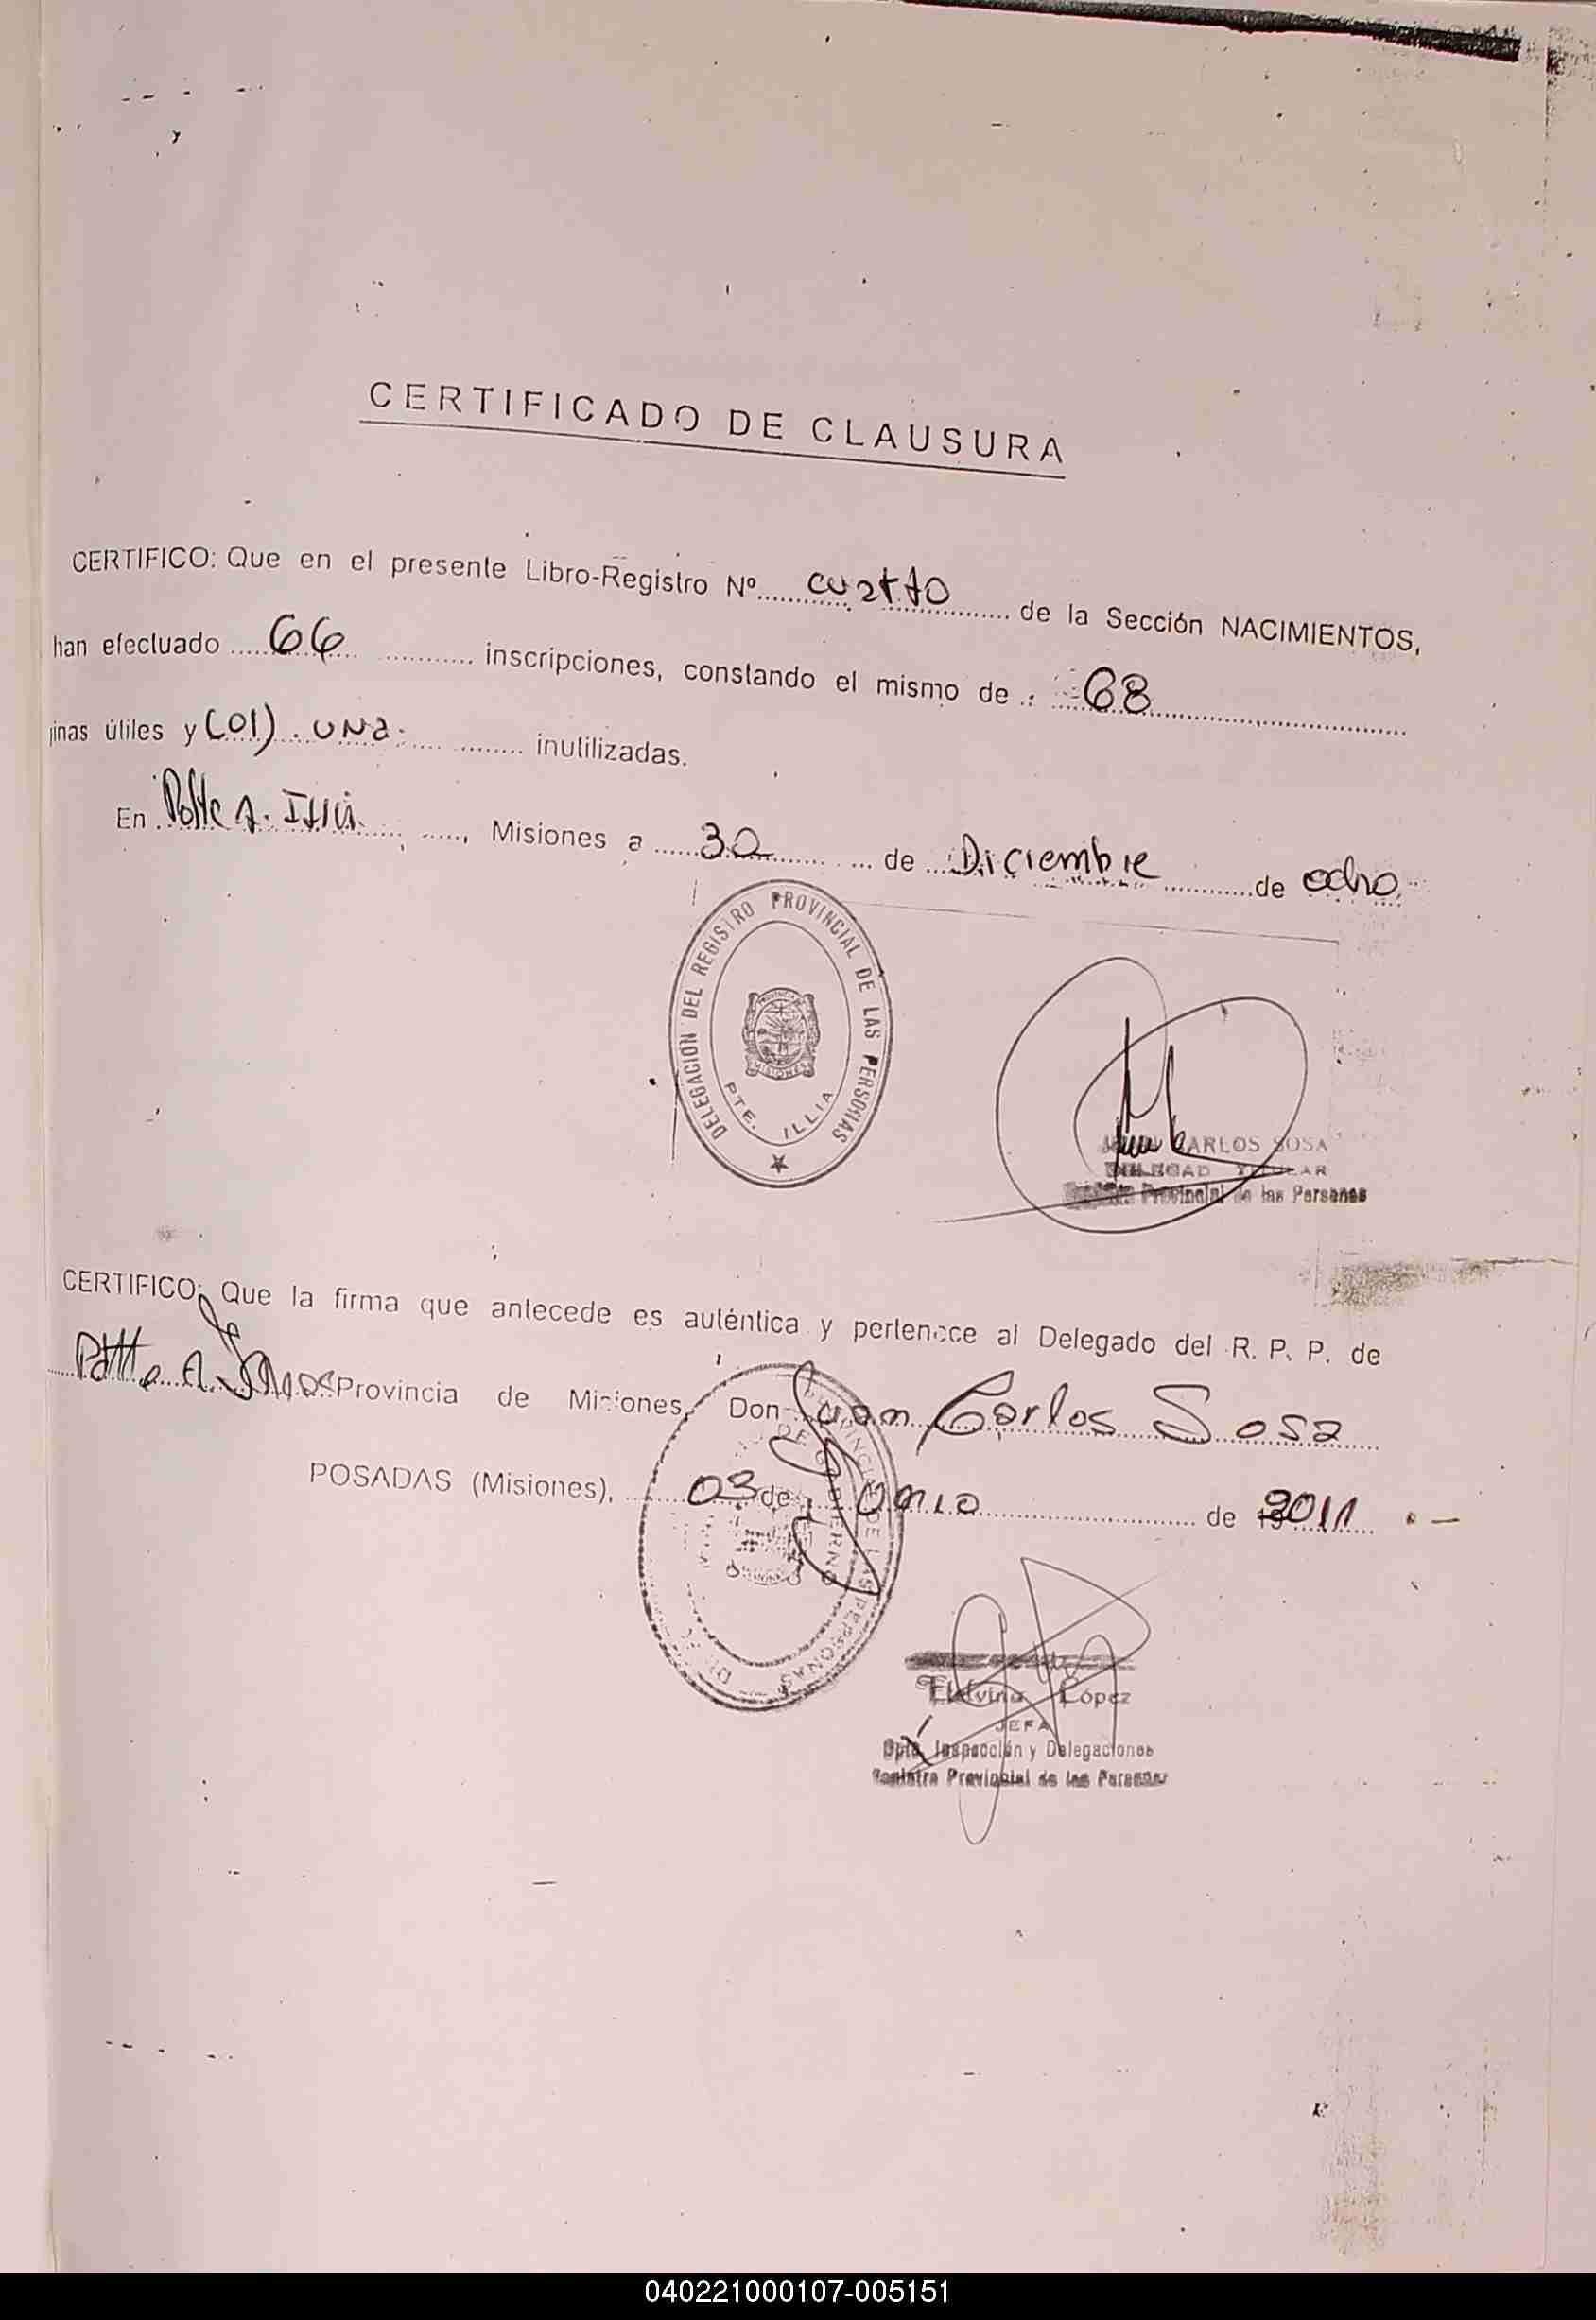 CERTIFICADO DE CLAUSURA
CERTIFICO: Que en el presente Libro-Registro Nº cuarto de la Sección NACIMIENTOS,
han efectuado 66 inscripciones, constando el mismo de : 68
jinas útiles y (01). una. inutilizadas.
En A. Illia, Misiones a 30 de Diciembre de ocho
DELEGACION DEL REGISTRO PROVINCIAL DE LAS PERSONAS
PROVINCIA DE
MISIONES
PTE. ILLIA
JUAN CARLOS SOSA
DELEGAD TITULAR
Registro Provincial de las Personas
CERTIFICO: Que la firma que antecede es auténtica y pertenece al Delegado del R. P. P. de
A. Provincia de Misiones, Don Juan Carlos Sosa
POSADAS (Misiones), 03 de Junio de 2011 . -
PROVINCIAL DE LAS PERSONAS
DE GOBIERNO
López
JEFA
Dpto. Inspección y Delegaciones
Registro Provincial de las Personas
040221000107-005151